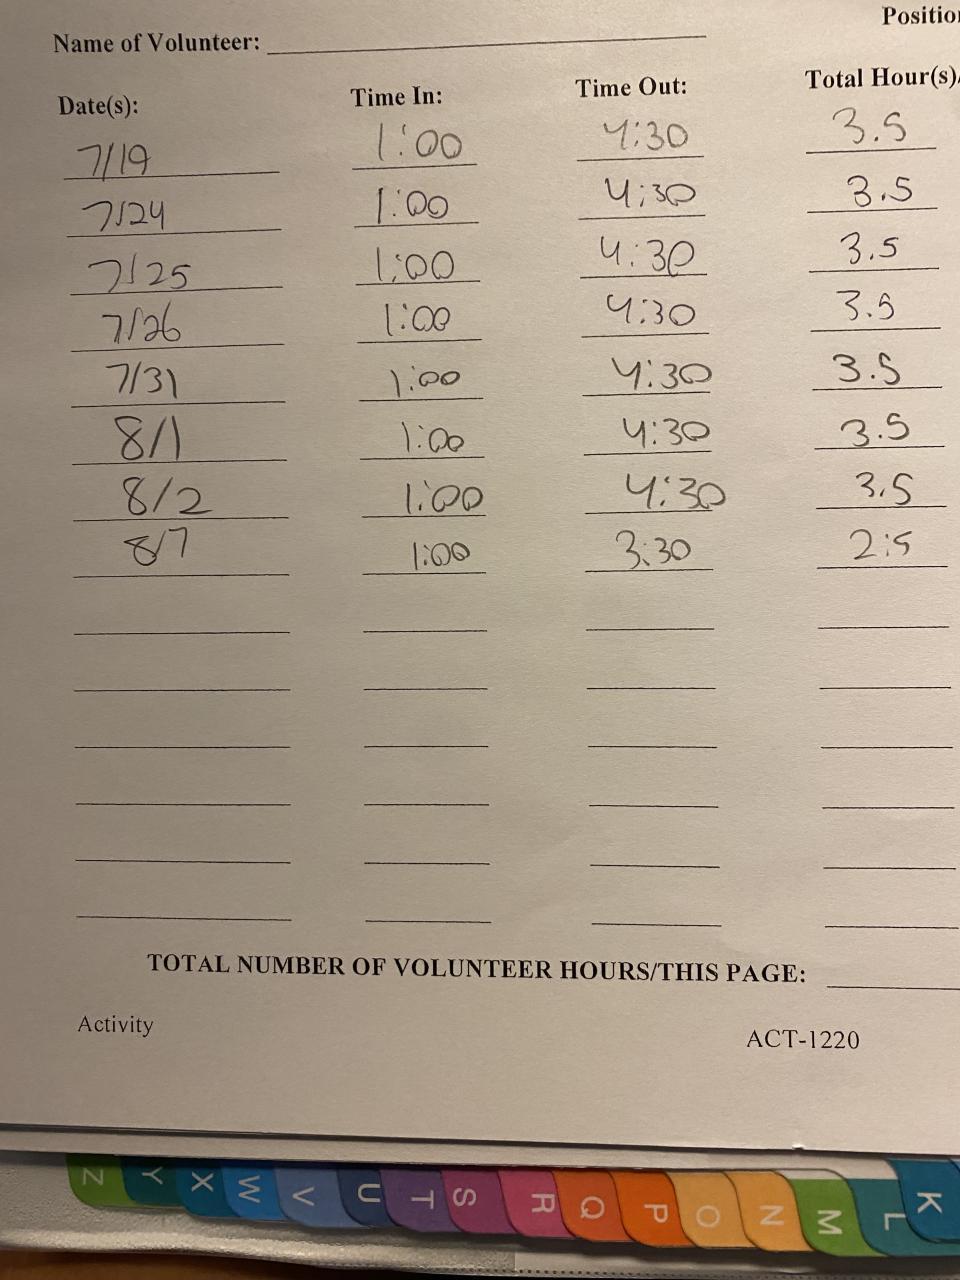 Position
Name of Volunteer:
Date(s): Time In: Time Out: Total Hour(s)/
7/19 1:00 4:30 3.5
7/24 1:00 4:30 3.5
7/25 1:00 4:30 3.5
7/26 1:00 4:30 3.5
7/31 1:00 4:30 3.5
8/1 1:00 4:30 3.5
8/2 1:00 4:30 3.5
8/7 1:00 3:30 2:5
TOTAL NUMBER OF VOLUNTEER HOURS/THIS PAGE:
Activity ACT-1220
Z Y X W V U T S R Q P O N M L K